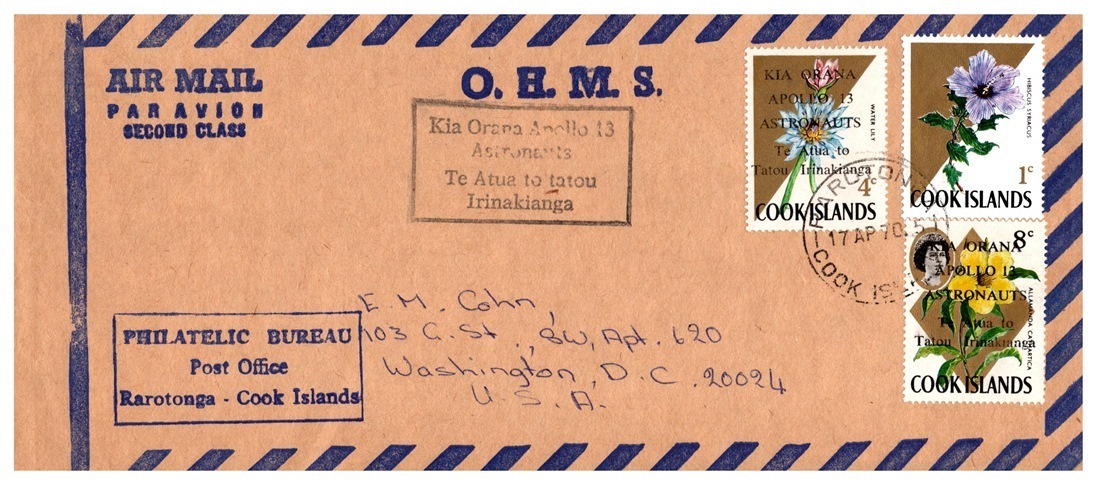 AIR MAIL
PAR AVION
SECOND CLASS
O. H. M. S.
Kia Orana Apollo 13
Astronauts
Te Atua to tatou
Irinakianga
KIA ORANA
APOLLO 13
ASTRONAUTS
Te Atua to
Tatou Irinakianga
WATER LILY
4c
COOK ISLANDS
HIBISCUS SYRIACUS
1c
COOK ISLANDS
RAROTON
17 AP 70
COOK IS
8c
KIA ORANA
APOLLO 13
ASTRONAUTS
Te Atua to
Tatou Irinakianga
ALLAMANDA CATHARTICA
COOK ISLANDS
PHILATELIC BUREAU
Post Office
Rarotonga - Cook Islands
E. M. Cohn,
103 G. St., SW, Apt. 620
Washington, D. C. 20024
U. S. A.